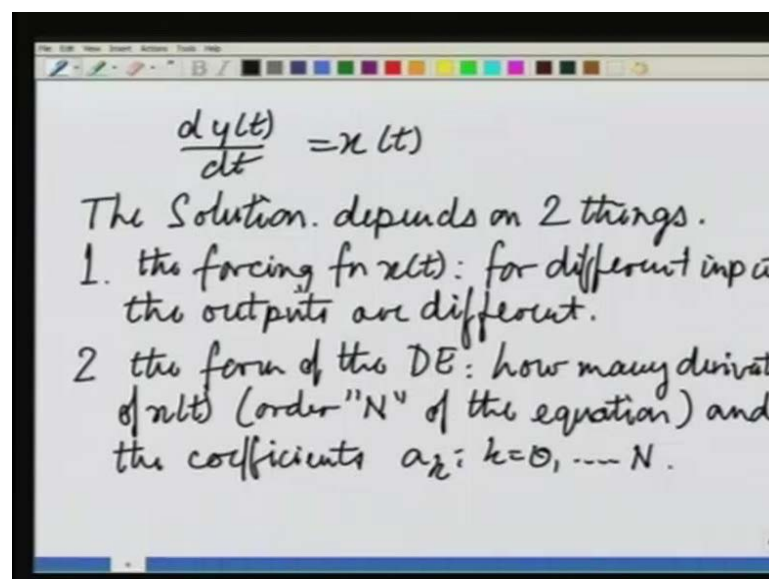 File Edit View Insert Actions Tools Help
B I
dy(t)/dt = x(t)
The Solution. depends on 2 things.
1. the forcing fn x(t): for different inpu
the outputs are different.
2 the form of the DE: how many derivat
of x(t) (order "N" of the equation) and
the coefficients a_k: k=0, .... N.